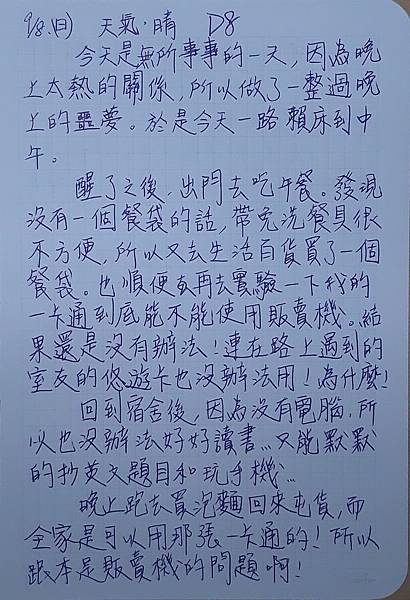 9/8.(日) 天氣:晴 D8
今天是無所事事的一天,因為晚
上太熱的關係,所以做了一整過晚
上的噩夢。於是今天一路賴床到中
午。
醒了之後,出門去吃午餐。發現
沒有一個餐袋的話,帶免洗餐具很
不方便,所以又去生活百貨買了一個
餐袋。也順便去再去實驗一下我的
一卡通到底能不能使用販賣機。結
果還是沒有辦法!連在路上遇到的
室友的悠遊卡也沒辦法用!為什麼!
回到宿舍後,因為沒有電腦,所
以也沒辦法好好讀書...又能默默
的抄英文題目和玩手機...
晚上跑去買泡麵回來屯貨,而
全家是可以用那張一卡通的!所以
跟本是販賣機的問題啊!